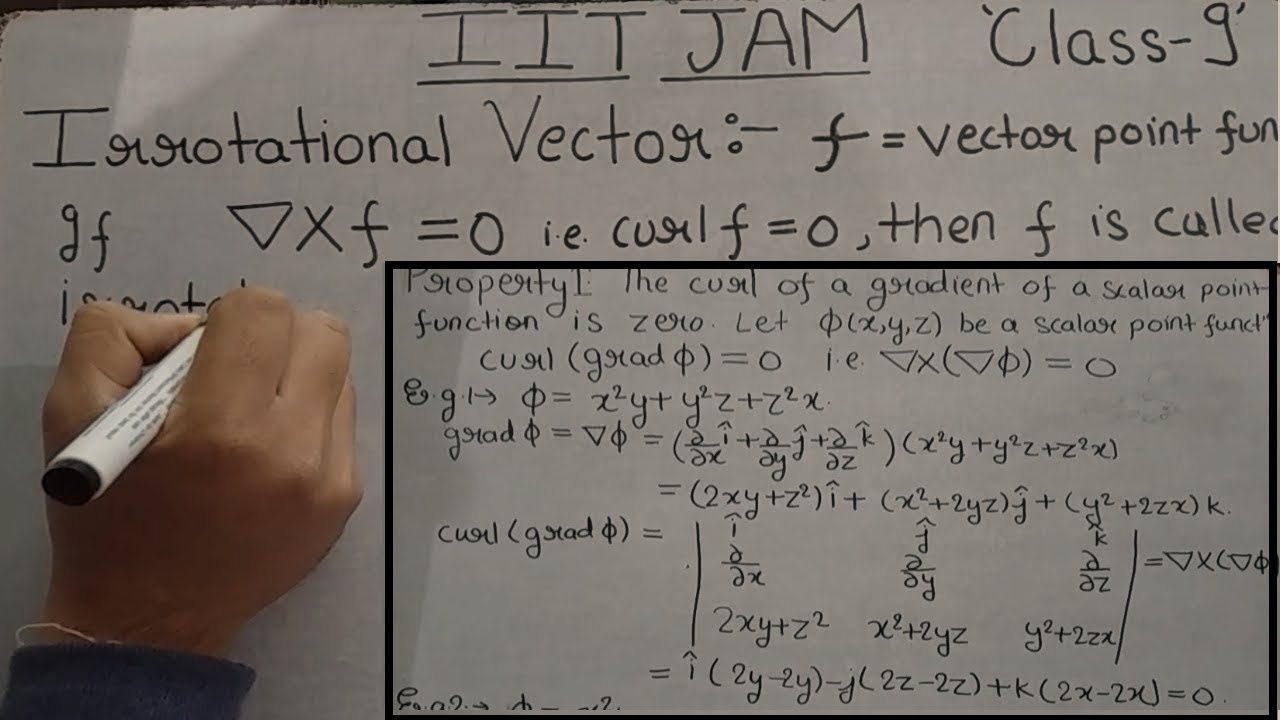 IIT JAM 'Class-9'
Irrotational Vector:- f = vector point fun
If ∇×f = 0 i.e. curl f = 0, then f is calle
Property I: The curl of a gradient of a scalar point
function is zero. Let ϕ(x,y,z) be a scalar point funct
curl (grad ϕ) = 0 i.e. ∇×(∇ϕ) = 0
E.g.1→ ϕ = x²y + y²z + z²x.
grad ϕ = ∇ϕ = (∂/∂x î + ∂/∂y ĵ + ∂/∂z k̂) (x²y + y²z + z²x)
= (2xy+z²)î + (x²+2yz)ĵ + (y²+2zx)k.
curl (grad ϕ) = | î ĵ k̂
∂/∂x ∂/∂y ∂/∂z | = ∇×(∇ϕ
2xy+z² x²+2yz y²+2zx |
= î (2y-2y) - j (2z-2z) + k (2x-2x) = 0.